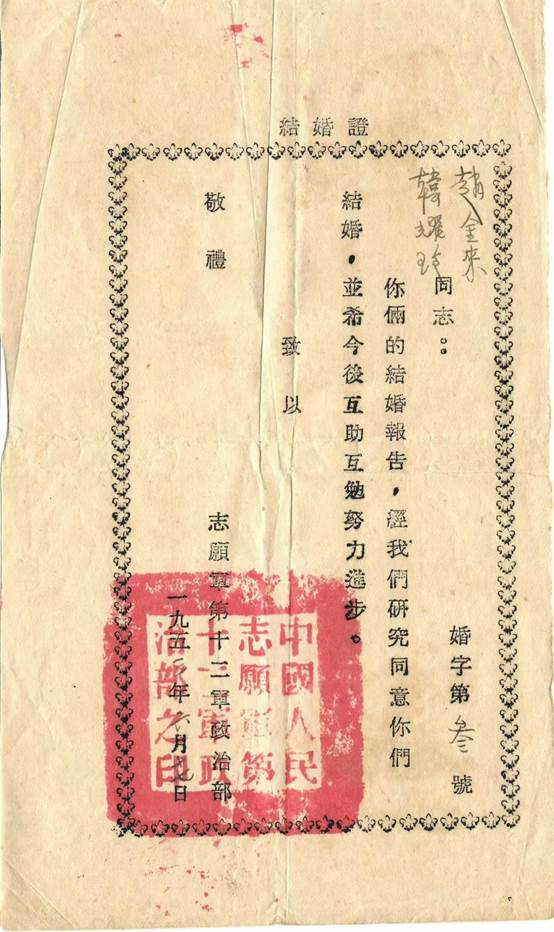 結婚證
婚字第叁號
趙金來
韓耀玲
同志：
你倆的結婚報告，經我們研究同意你們
結婚，並希今後互助互勉努力進步。
致以
敬禮
志願軍第十二軍政治部
一九五 年 月 日
中國人民
志願軍第
十二軍政
治部之印